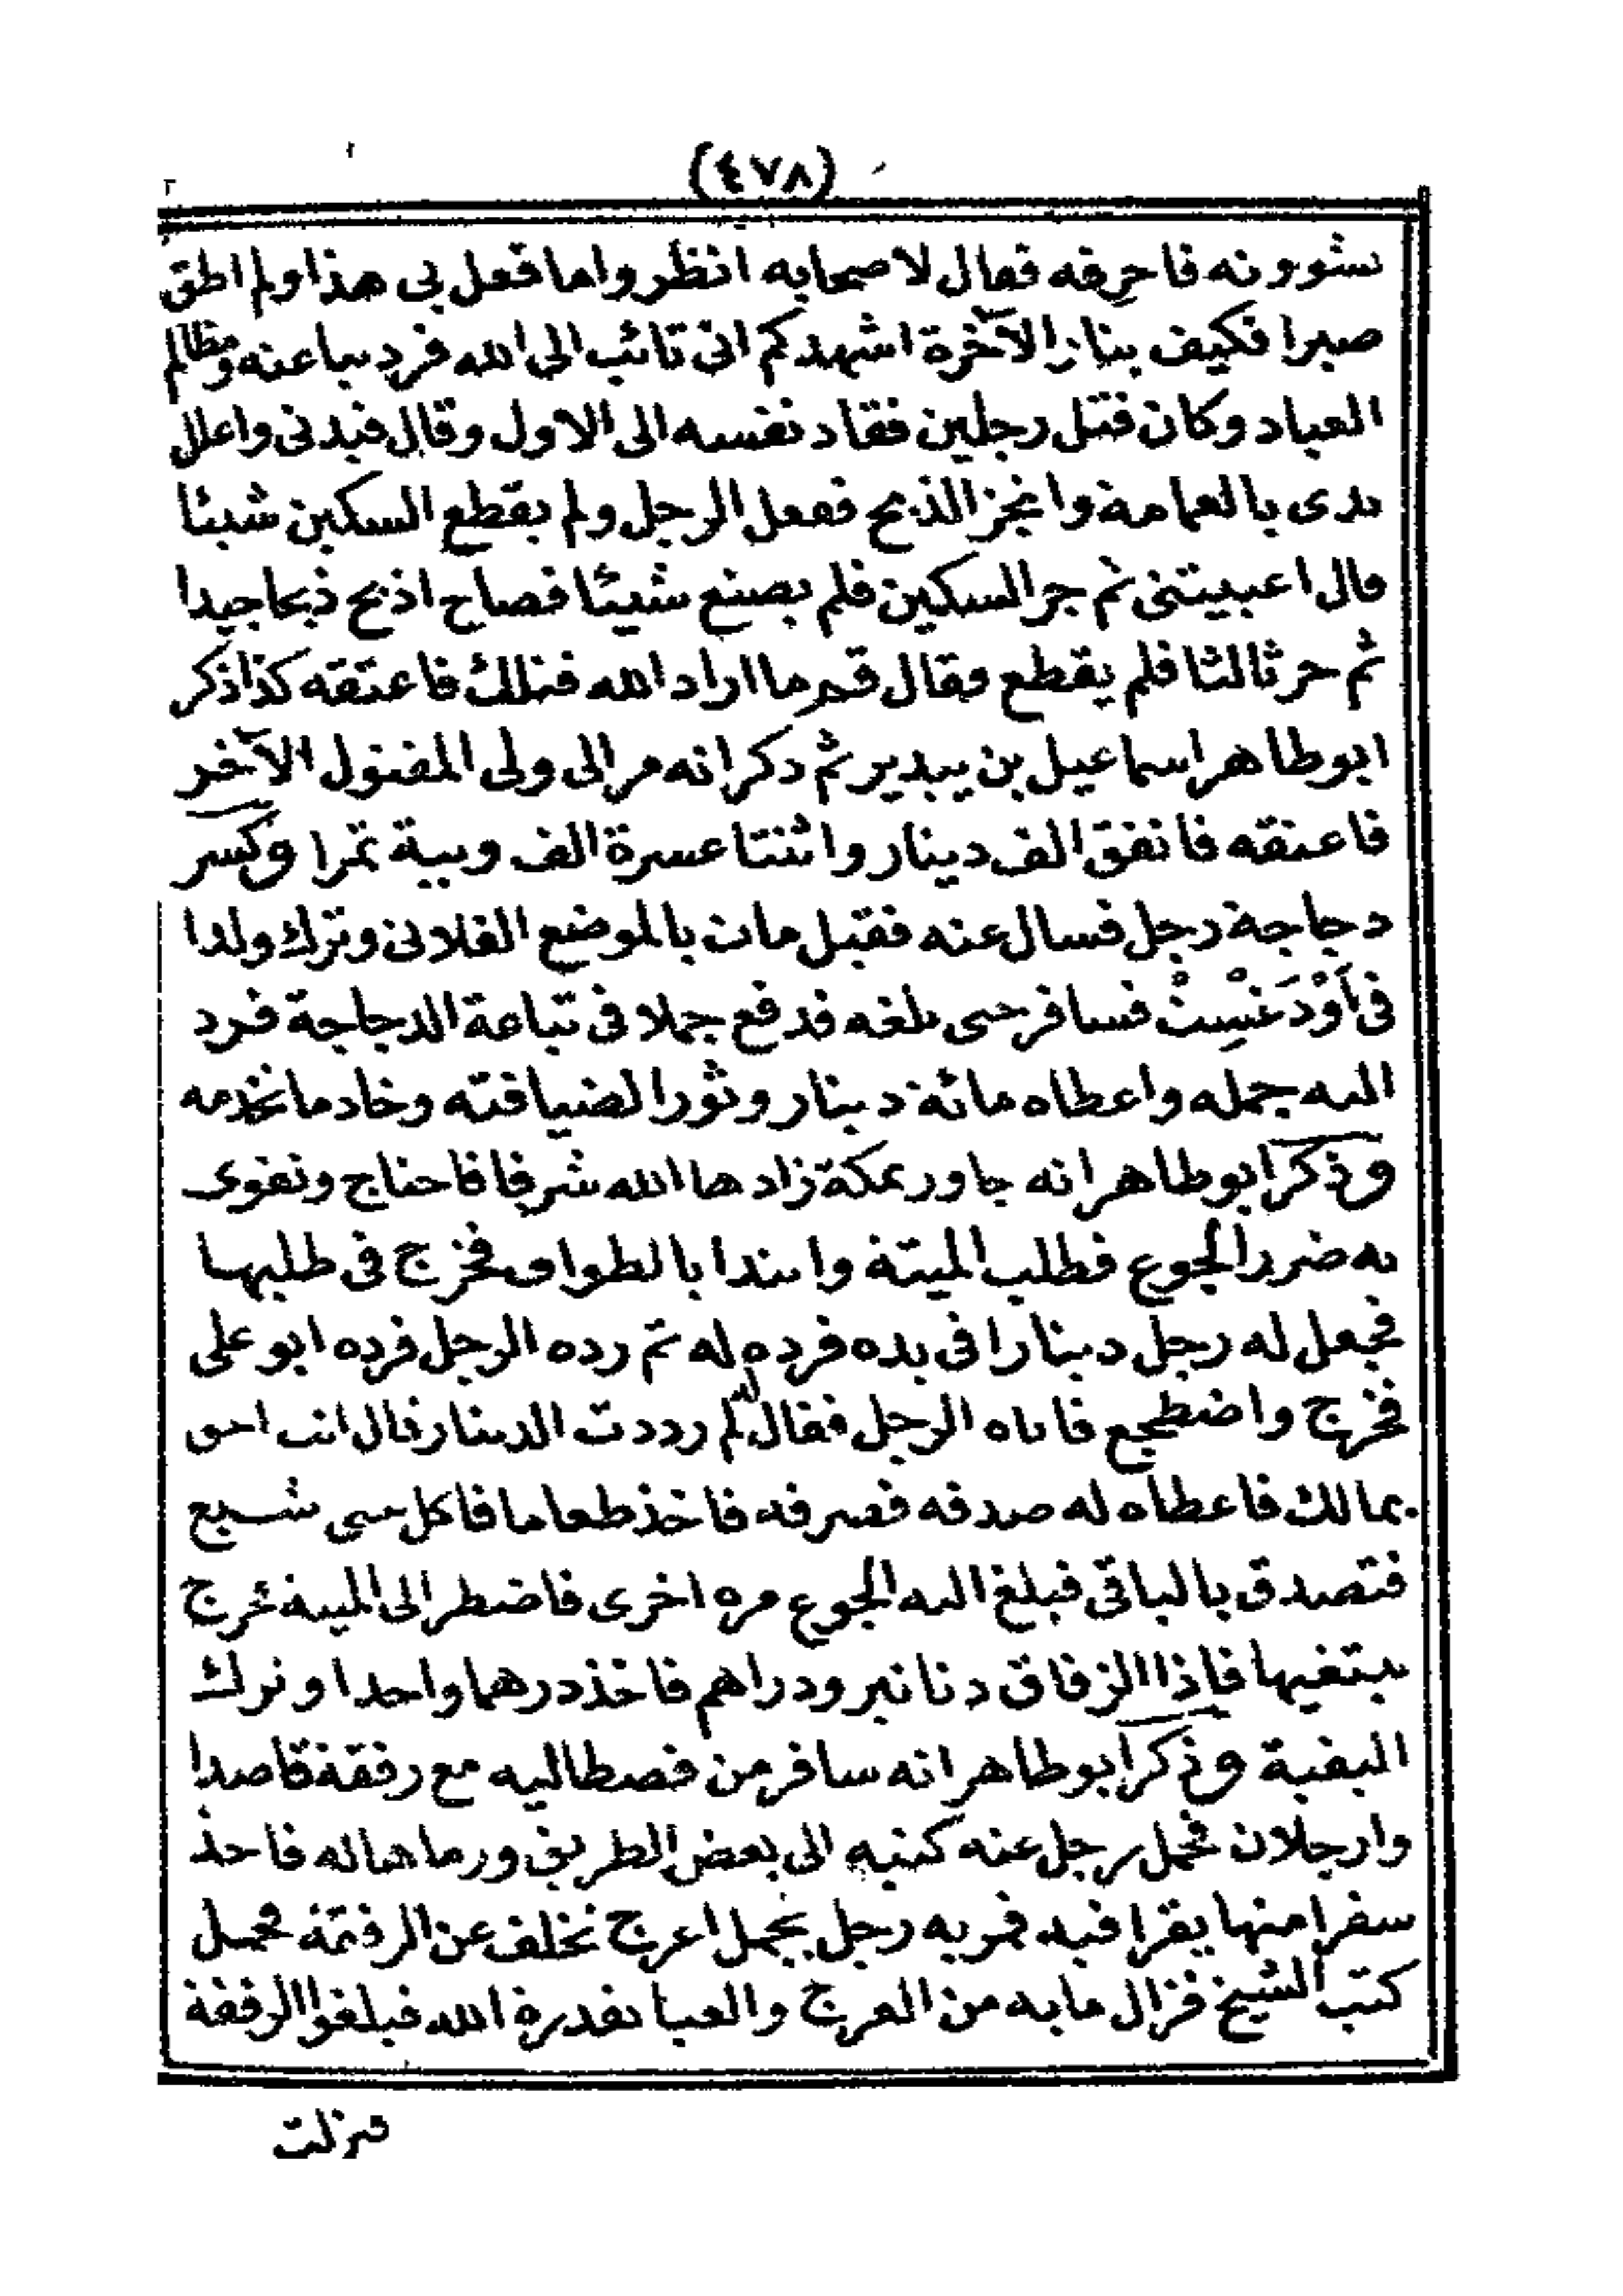 (٤٧٨)
يشوونه فاحرقه فقال لاصحابه انظروا ما فعل بي هذا ولم اطق
صبرا فكيف بنار الآخرة اشهدكم اني تائب الى الله فرد تباعته ومظالم
العباد وكان قتل رجلين فقاد نفسه الى الاول وقال قيدني واغلل
يدى بالعمامة وانجز الذبح ففعل الرجل ولم يقطع السكين شيئا
قال اعييتنى ثم جر السكين فلم يصنع شيئا فصاح اذبح ذبحا جيدا
ثم جر ثالثا فلم يقطع فقال قم ما اراد الله قتلك فاعتقه كذا ذكر
ابو طاهر اسماعيل بن ييدير ثم ذكر انه مر الى ولى المقتول الآخر
فاعتقه فانفق الف دينار واثنتا عسرة الف ويبة تمرا وكسر
دجاجة رجل فسال عنه فقيل مات بالموضع الفلانى وترك ولدا
فى اَوْدَغَسِتْ فسافر حتى بلغه فدفع جملا فى تباعة الدجاجة فرد
اليه جمله واعطاه مائة دينار وثورا لضيافته وخادما تخدمه
وذكر ابو طاهر انه جاور بمكة زادها الله شرفا فاحتاج وتقوى
به ضرر الجوع فطلب الميتة وابتدا بالطواف فخرج فى طلبها
فجعل له رجل دينارا فى يده فرده له ثم رده الرجل فرده ابو على
فخرج واضطجع فاتاه الرجل فقال له لم رددت الدينار قال انت احق
بمالك فاعطاه له صدقة فصرفه فاخذ طعاما فاكل حتى شبع
فتصدق بالباقى فبلغ اليه الجوع مرة اخرى فاضطر الى الميتة فخرج
يبتغيها فاذا الزقاق دنانير ودراهم فاخذ درهما واحدا وترك
البقية وذكر ابو طاهر انه سافر من قصطاليه مع رفقة قاصدا
وارجلان فحمل رجل عنه كتبه الى بعض الطريق ورماها له فاخذ
سفرا منها يقرا فيه فمر به رجل بجمل اعرج تخلف عن الرفقة فحمل
كتب الشيخ فزال ما به من العرج والعيا بقدرة الله فبلغوا الرفقة
فنزلت